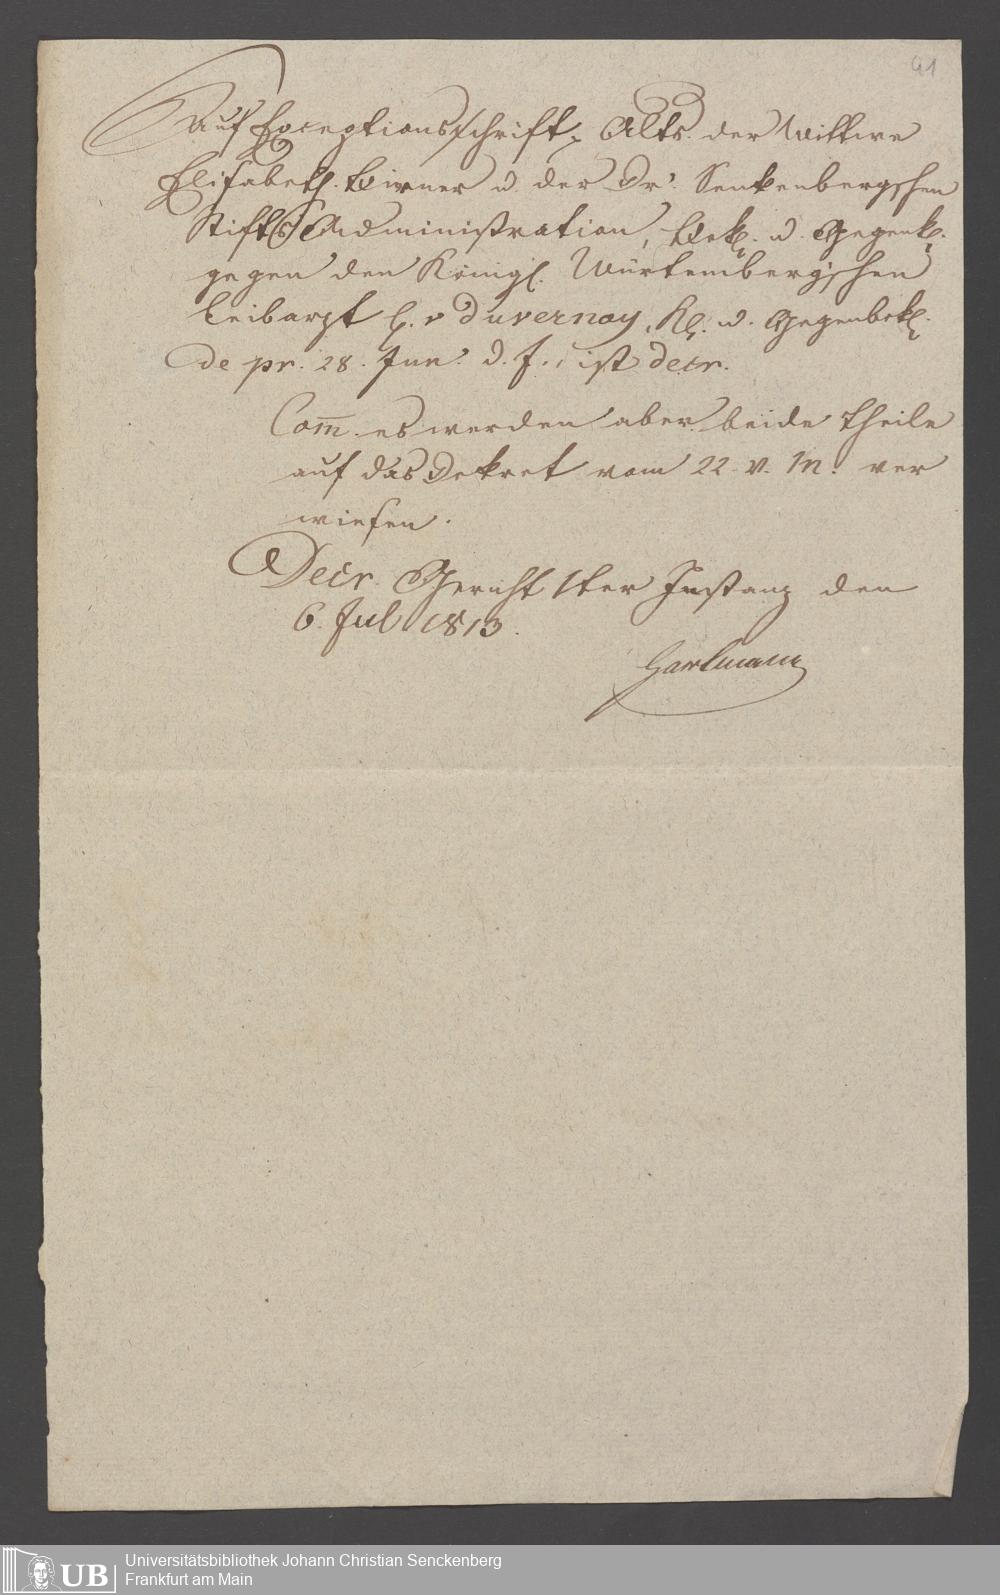 41
Auf Exceptionsschrift, Altr. der Wittwe
Elisabeth. Birner u. der Dr. Senkenbergschen
Stifts Administration, Bekl. u. Gegenkl.
gegen den Königl. Würtembergschen
Leibarzt H. v Duvernoy, Kl. u. Gegenbekl.
de pr. 28. Jun. d. J., ist decr.
Com̅. es werden aber beide Theile
auf das Dekret vom 22. v. M. ver
wiesen.
Decr. Gericht 1ter Instanz den
6. Jul 1813.
Hartmann
UB
Universitätsbibliothek Johann Christian Senckenberg
Frankfurt am Main